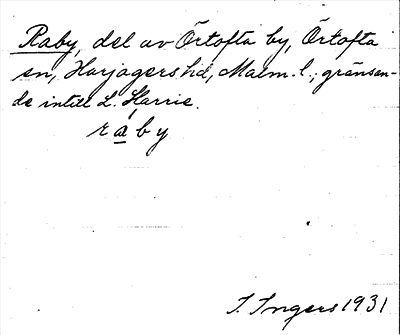 Raby, del av Örtofta by, Örtofta
sn, Harjagers hd, Malm. l.; gränsan-
de intill L. Harrie.
råby
I. Ingers 1931